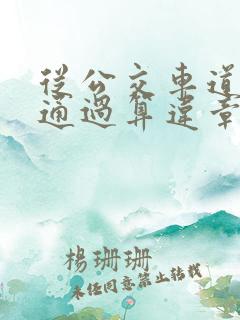 從公交車道
通過算違章
楊珊珊
未經同意禁止轉載